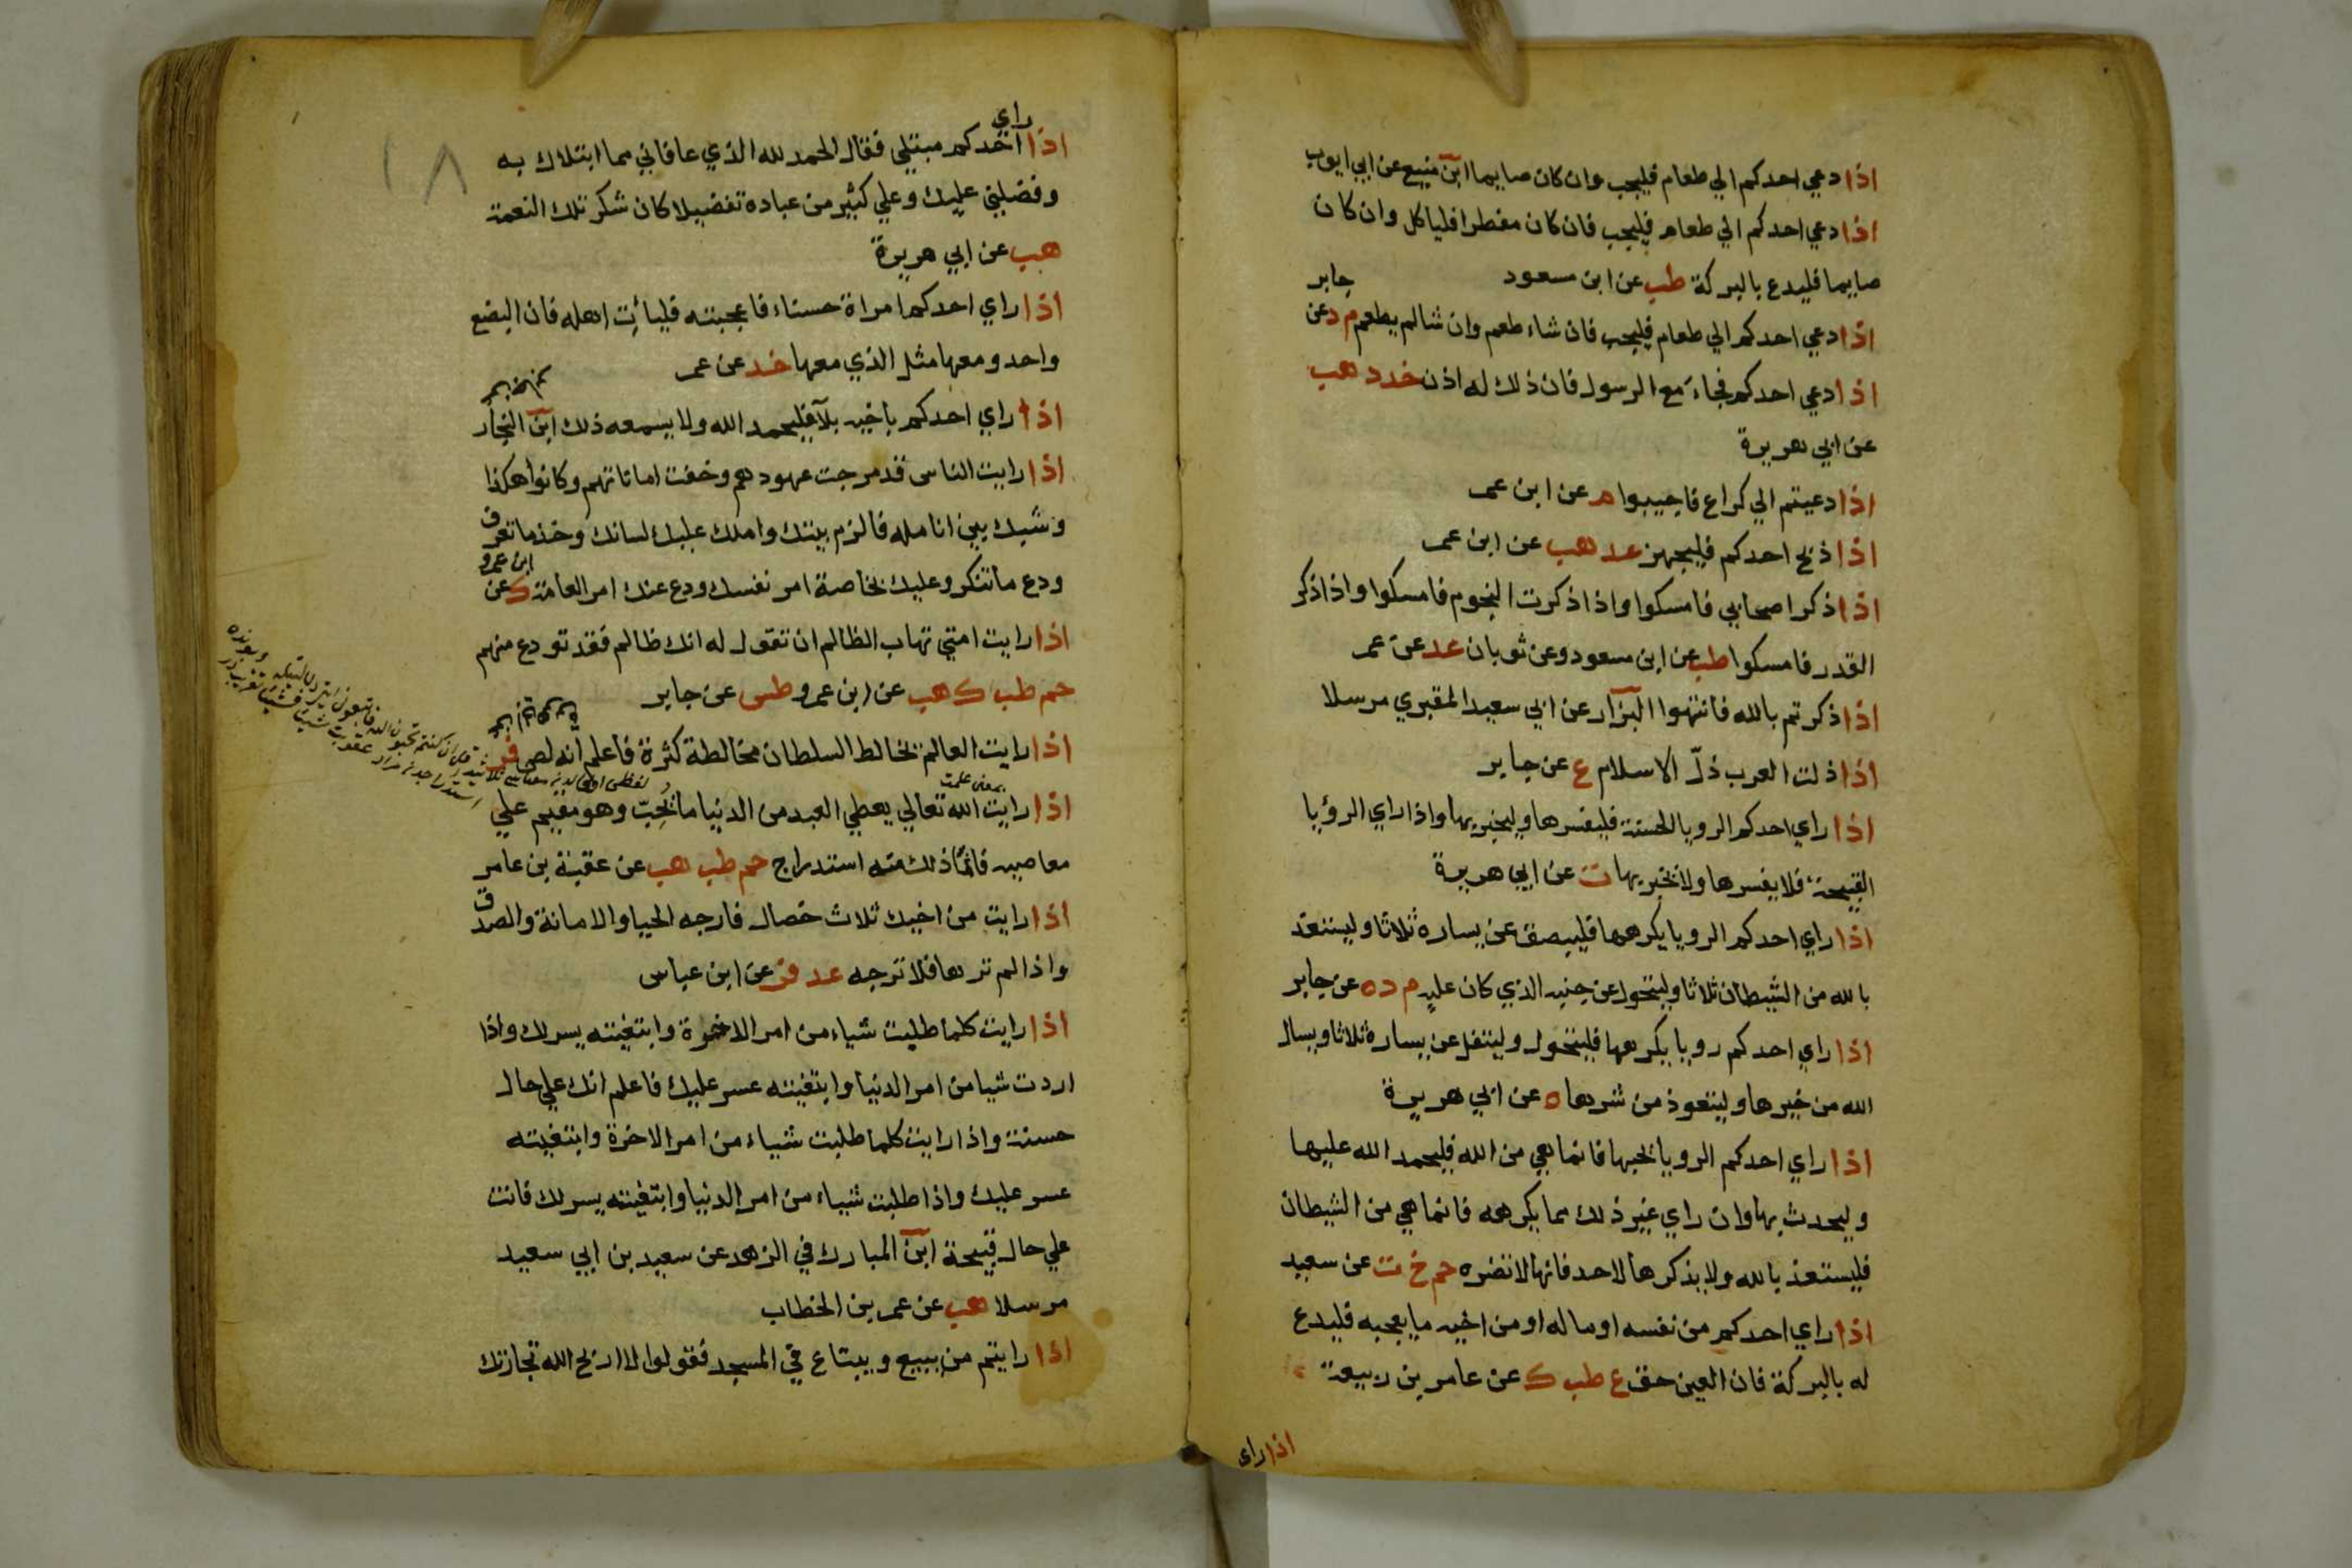 اذا دعي احدكم الي طعام فليجب وان كان صايما ابن منيع عن ابي ايوب
اذا دعي احدكم الي طعام فليجب فان كان مفطرا فلياكل وان كان
صايما فليدع بالبركة طب عن ابن مسعود
اذا دعي احدكم الي طعام فليجب فان شاء طعم وان شا لم يطعم م د عن جابر
اذا دعي احدكم فجاء مع الرسول فان ذلك له اذن خد د هب
عن ابي هريرة
اذا دعيتم الي كراع فاجيبوا م عن ابن عمر
اذا ذبح احدكم فليجهز عد هب عن ابن عمر
اذا ذكر اصحابي فامسكوا واذا ذكرت النجوم فامسكوا واذا ذكر
القدر فامسكوا طب عن ابن مسعود وعن ثوبان عد عن عمر
اذا ذكرتم بالله فانتهوا البزار عن ابي سعيد المقبري مرسلا
اذا ذلت العرب ذلّ الاسلام ع عن جابر
اذا راي احدكم الرويا الحسنة فليفسرها وليخبر بها واذا راي الرؤيا
القبيحة فلا يفسرها ولا يخبر بها ت عن ابي هريرة
اذا راي احدكم الرويا يكرهها فليبصق عن يساره ثلاثا وليستعذ
بالله من الشيطان ثلاثا وليتحول عن جنبه الذي كان عليه م د ه عن جابر
اذا راي احدكم رويا يكرهها فليتحول وليتفل عن يساره ثلاثا ويسال
الله من خيرها وليتعوذ من شرها ه عن ابي هريرة
اذا راي احدكم الرويا يحبها فانما هي من الله فليحمد الله عليها
وليحدث بها وان راي غير ذلك مما يكرهه فانما هي من الشيطان
فليستعذ بالله ولا يذكرها لاحد فانها لا تضره حم خ ت عن سعيد
اذا راي احدكم من نفسه او ماله او من اخيه ما يعجبه فليدع
له بالبركة فان العين حق ع طب ك عن عامر بن ربيعة
اذا راى
١٨
راي
اذا احدكم مبتلي فقال الحمد لله الذي عافاني مما ابتلاك به
وفضلني عليك وعلي كثير من عباده تفضيلا كان شكر تلك النعمة
هب عن ابي هريرة
اذا راي احدكم امراة حسناء فاعجبته فليأت اهله فان البضع
واحد ومعها مثل الذي معها خد عن عمر
اذا راي احدكم باخيه بلآ فليحمد الله ولا يسمعه ذلك ابن النجار
اذا رايت الناس قد مرجت عهودهم وخفت اماناتهم وكانوا هكذا
وشبك بين انامله فالزم بيتك واملك عليك لسانك وخذ ما تعرف
ودع ما تنكر وعليك بخاصة امر نفسك ودع عنك امر العامة ك عن ابن عمرو
اذا رايت امتي تهاب الظالم ان تقول له انك ظالم فقد تودع منهم
حم طب ك هب عن ابن عمرو طس عن جابر
اذا رايت العالم يخالط السلطان مخالطة كثرة فاعلم انه لص فر
بمعنى علمت
اذا رايت الله تعالي يعطي العبد من الدنيا ما يُحِبّ وهو مقيم علي
معاصيه فانما ذلك منه استدراج حم طب هب عن عقبة بن عامر
اذا رايت من اخيك ثلاث خصال فارجه الحيا والامانة والصدق
واذا لم ترها فلا ترجه عد فر عن ابن عباس
اذا رايت كلما طلبت شياء من امر الاخرة وابتغيته يسر لك واذا
اردت شيا من امر الدنيا وابتغيته عسر عليك فاعلم انك علي حال
حسنة واذا رايت كلما طلبت شياء من امر الاخرة وابتغيته
عسر عليك واذا طلبت شياء من امر الدنيا وابتغيته يسر لك فانت
علي حال قبيحة ابن المبارك في الزهد عن سعيد بن ابي سعيد
مرسلا هب عن عمر بن الخطاب
اذا رايتم من يبيع ويبتاع في المسجد فقولوا لا اربح الله تجارتك